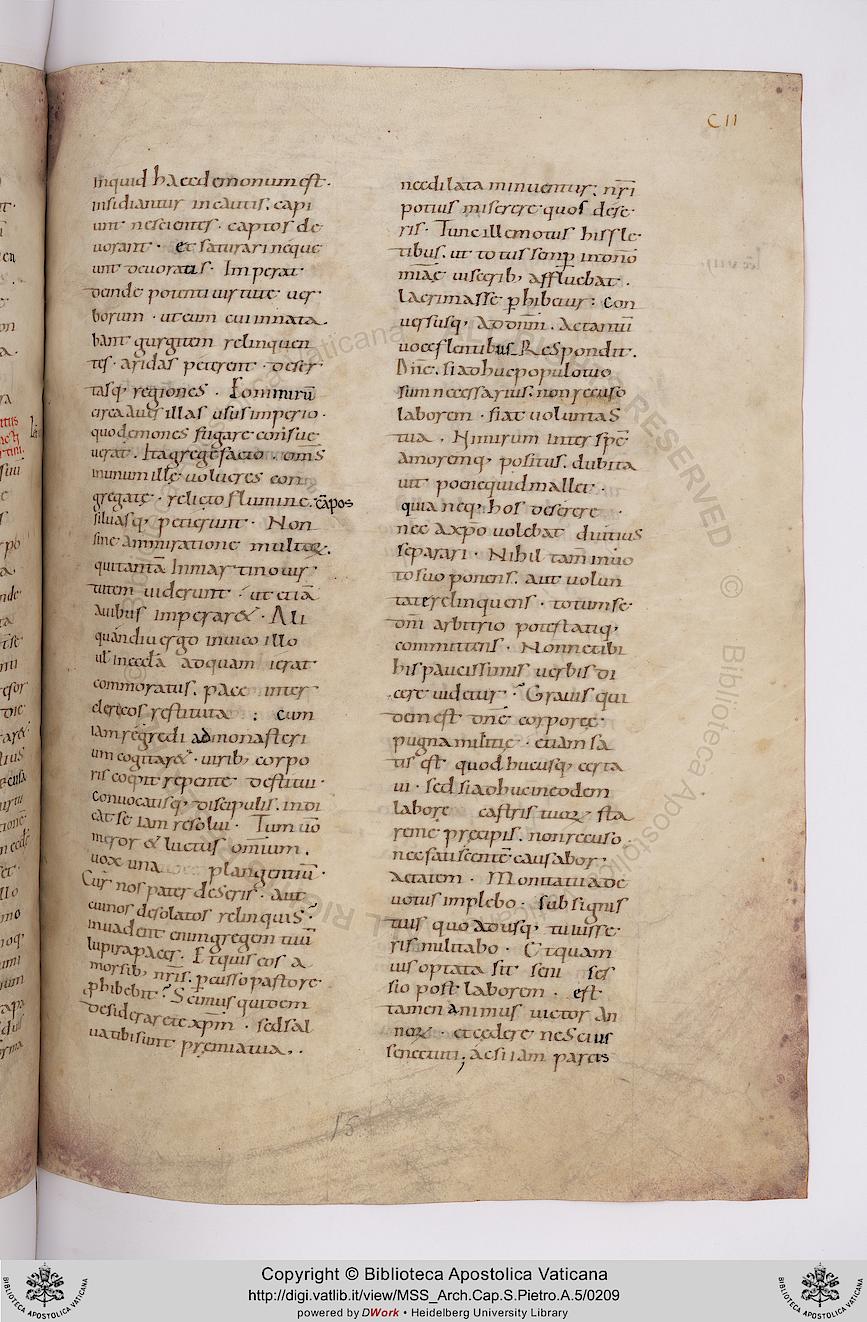 CII
inquid haec demonum est.
insidiantur incautis. capi
unt nescientes. captos de
uorant. et saturari neque
unt deuoratis. Imperat
deinde potenti uirtute uer
borum. ut eum cui innata
bant gurgitem relinquen
tes. aridas peterent deser
tasq; regiones. Eo nimirū
circa aues illas usus imperio.
quo demones fugare consue
uerat. Ita grege facto. om̄s
in unum illę uolucres con
gregatę. relicto flumine. cāpos
siluasq; petierunt. Non
sine ammiratione multorꝝ.
qui tantā in martino uir
tutem uiderunt. ut etiā
auibus imperaret. Ali
quandiu ergo in uico illo
ul in ecclā ad quam ierat
commoratus. pace inter
clericos restituta; cum
iam regredi ad monasteri
um cogitaret. uirib; corpo
ris coepit repente destitui.
conuocatisq; discipulis. indi
cat se iam resolui. Tum uō
meror & luctus omnium.
uox una plangentiū.
Cur nos pater deseris. aut
cui nos desolatos relinquis?
inuadent enim gregem tuū
lupi rapaces. Et quis eos a
morsib; nr̄is. pcusso pastore
phibebit? Scimus quidem
desiderare te xp̄m. sed sal
ua tibi sunt pręmia tua..
nec dilata minuentur; nr̄i
potius miserere quos dese
ris. Tunc ille motus his fle
tibus. ut totus semp in dn̄o
miae uiscerib; affluebat.
lacrimasse phibetur: con
uersusq; ad dnm̄. Ac tantū
uoce flentibus respondit.
Dn̄e. si adhuc populo tuo
sum necessarius. non recuso
laborem. fiat uoluntas
tua. Nimirum inter spē
amoremq; positus. dubita
uit poene quid mallet.
quia neq; hos deserere.
nec a xp̄o uolebat diutius
separari. Nihil tam̄ in uo
to suo ponens. aut uolun
tate relinquens. totum se
dn̄i arbitrio potestatiq;
committens. Nonne tibi
his paucissimis uerbis di
cere uidetur? Grauis qui
dem est dn̄e corporeę
pugna militię. etiam sa
tis est quod hucusq; certa
ui. sed si adhuc in eodem
labore castris tuorꝝ sta
rene pręcipis. non recuso
nec fatiscentē causabor.
aetatem. Munia tua de
uotus implebo. sub signis
tuis quo adusq; tu iusse
ris militabo. Et quam
uis optata sit seni ses
sio post laborem. est
tamen animus uictor an
norꝝ. et cedere nescius
senectuti; ac si iam parcis
15
Copyright © Biblioteca Apostolica Vaticana
http://digi.vatlib.it/view/MSS_Arch.Cap.S.Pietro.A.5/0209
powered by DWork • Heidelberg University Library